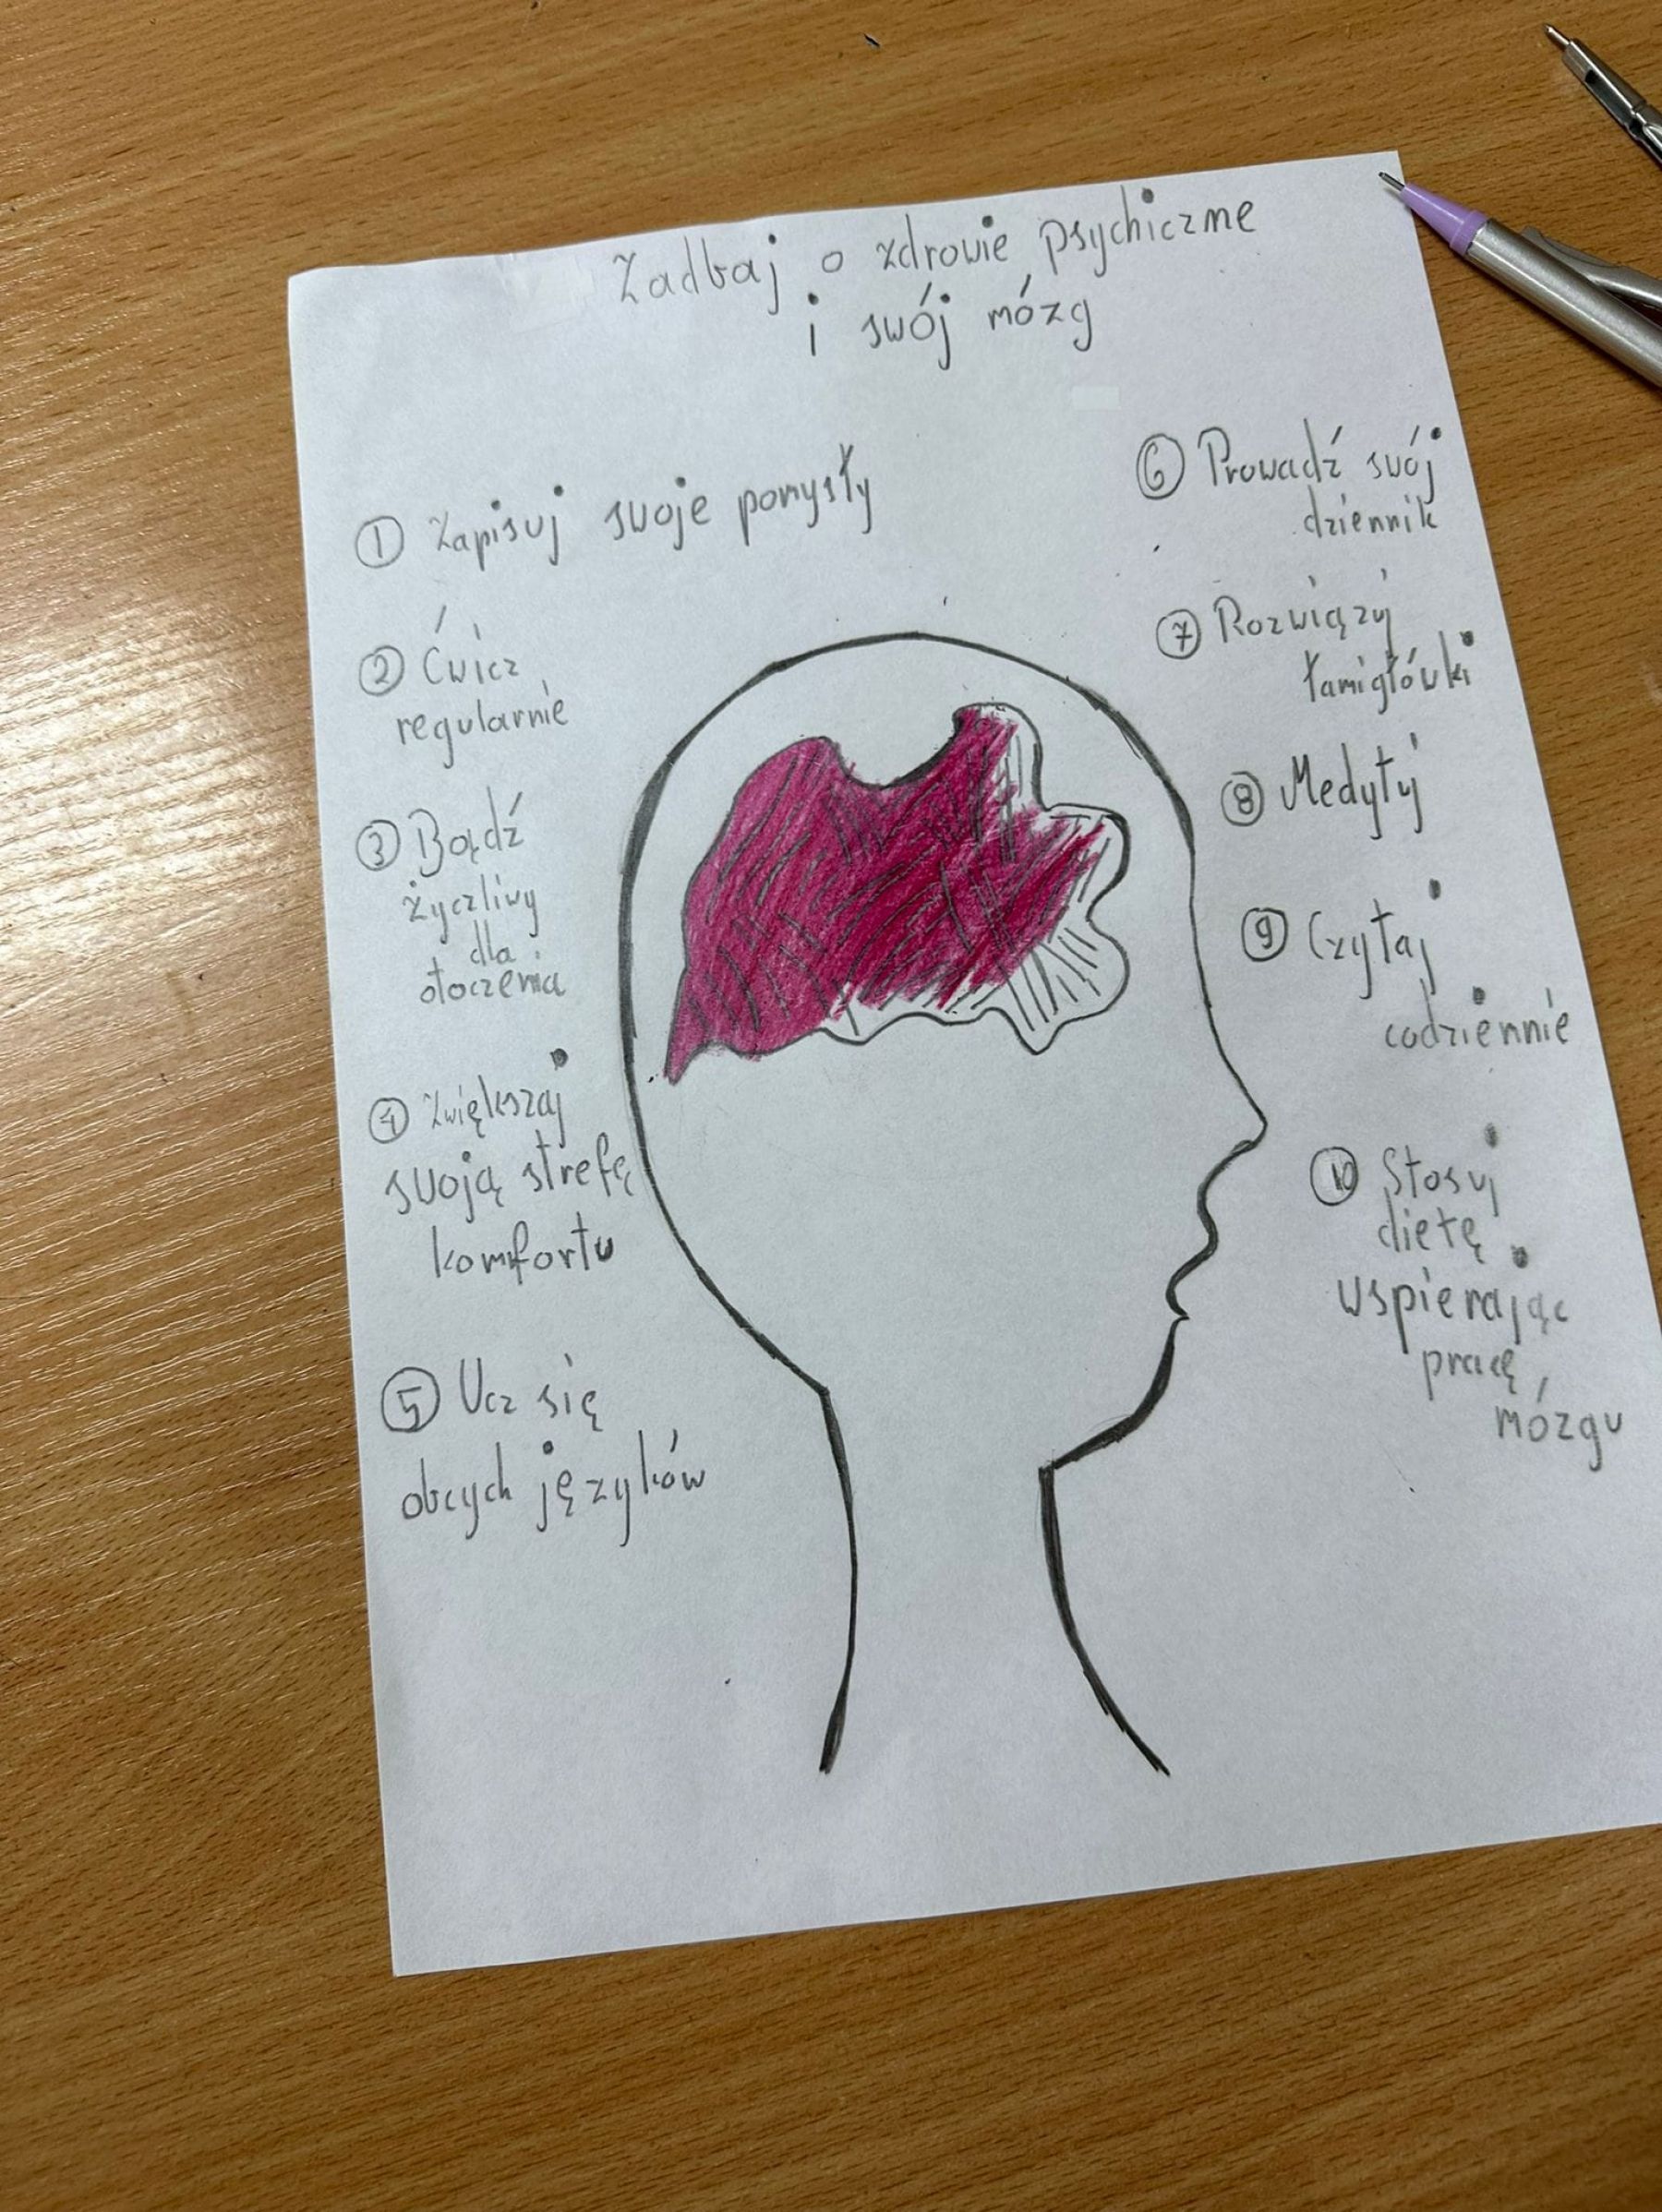 Zadbaj o zdrowie psychiczne
i swój mózg
① Zapisuj swoje pomysły
② Ćwicz
regularnie
③ Bądź
życzliwy
dla
otoczenia
④ Zwiększaj
swoją strefę
komfortu
⑤ Ucz się
obcych języków
⑥ Prowadź swój
dziennik
⑦ Rozwiązuj
łamigłówki
⑧ Medytuj
⑨ Czytaj
codziennie
⑩ Stosuj
dietę
wspierając
pracę
mózgu